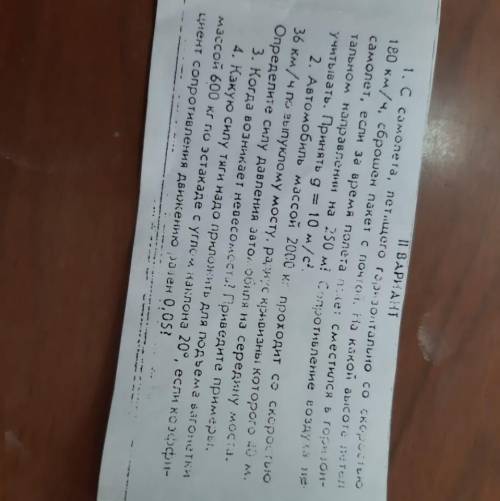 II ВАРИАНТ
1. С самолета, летящего горизонтально со скоростью
180 км/ч, сброшен пакет с почтой. На какой высоте летел
самолет, если за время полета пакет сместился в горизон-
тальном направлении на 250 м? Сопротивление воздуха не
учитывать. Принять g = 10 м/с².
2. Автомобиль массой 2000 кг проходит со скоростью
36 км/ч по выпуклому мосту, радиус кривизны которого 40 м.
Определите силу давления автомобиля на середину моста.
3. Когда возникает невесомость? Приведите примеры.
4. Какую силу тяги надо приложить для подъема вагонетки
массой 600 кг по эстакаде с углом наклона 20°, если коэффи-
циент сопротивления движению равен 0,05?